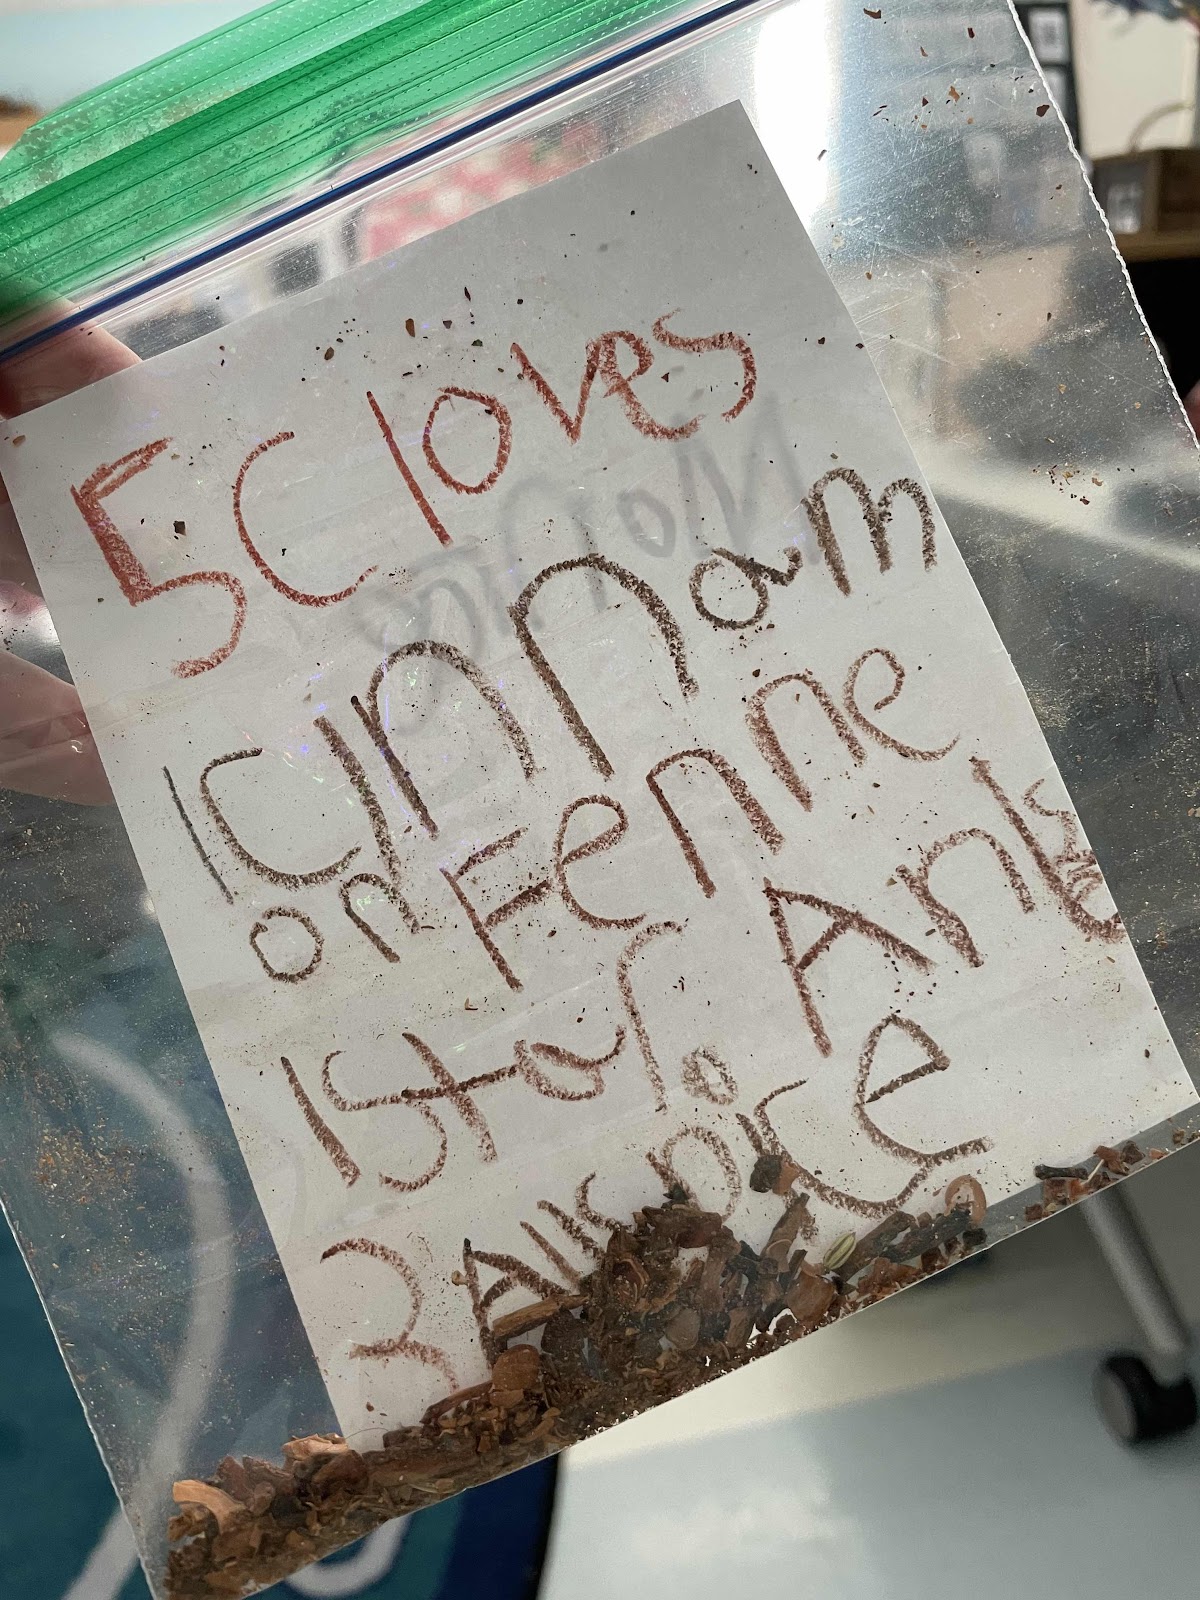 5 Cloves
1 CINNam
on Fenne
1 Star AnIse
2 Allspice